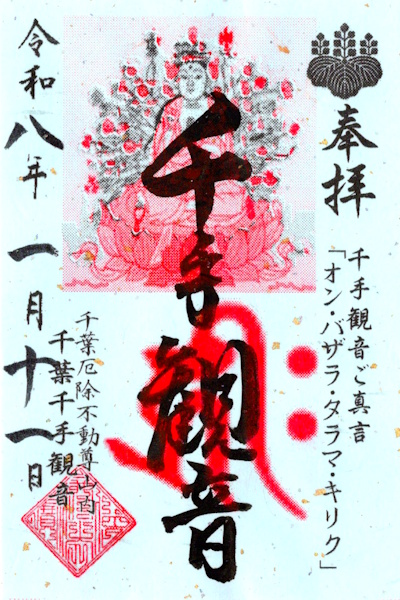 奉拝
千手観音ご真言
「オン・バザラ・タラマ・キリク」
千手観音
千葉厄除不動尊山内
千葉千手観音
令和八年 一月十一日